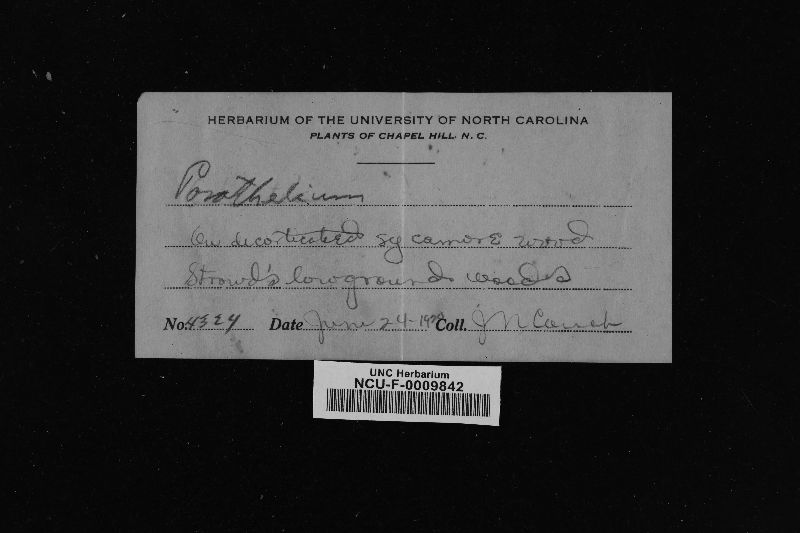 HERBARIUM OF THE UNIVERSITY OF NORTH CAROLINA
PLANTS OF CHAPEL HILL, N. C.
Porothelium
On decorticated sycamore wood
Strowd's lowgrounds woods
No. 4324 Date June 24- Coll. J N Couch
UNC Herbarium
NCU-F-0009842